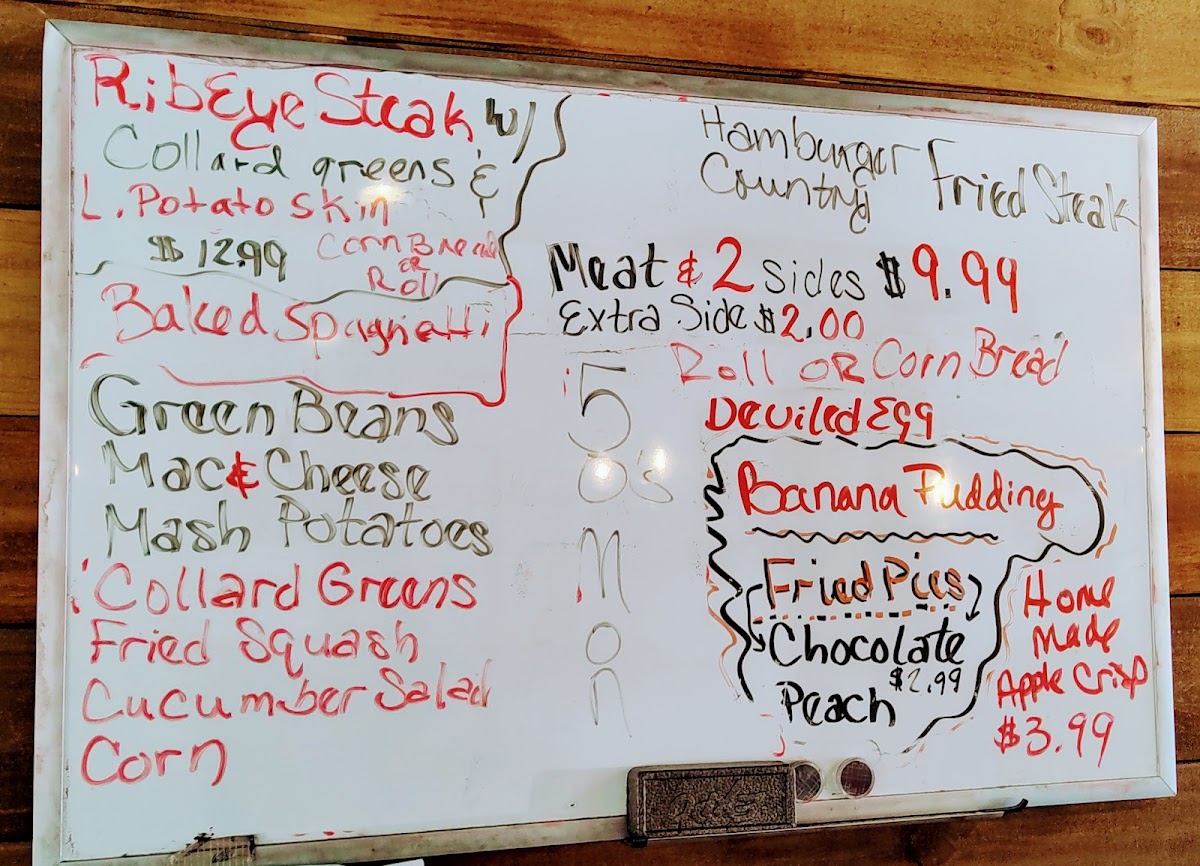 RibEye Steak w/
Collard greens &
L. Potato skin
$12.99
Corn Bread
OR
Roll
Baked Spaghetti
Green Beans
Mac & Cheese
Mash Potatoes
Collard Greens
Fried Squash
Cucumber Salad
Corn
50's
Mon
Hamburger
Country Fried Steak
Meat & 2 sides $9.99
Extra Side $2.00
Roll OR Corn Bread
Deviled Egg
Banana Pudding
Fried Pies
Chocolate
$2.99
Peach
Home
made
Apple Crisp
$3.99